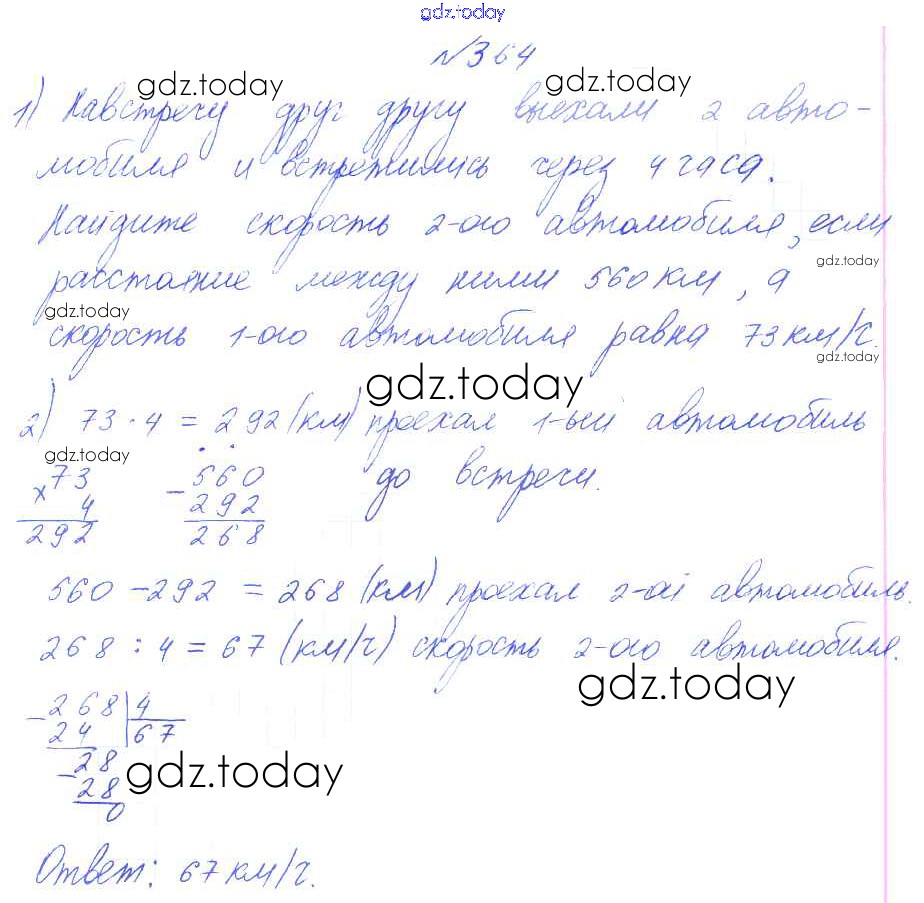 gdz.today
№364
gdz.today gdz.today
1) Навстречу друг другу выехали 2 авто-
мобиля и встретились через 4 часа.
Найдите скорость 2-ого автомобиля, если
gdz.today
расстояние между ними 560 км, а
gdz.today
скорость 1-ого автомобиля равна 73 км/ч.
gdz.today
gdz.today
2) 73 · 4 = 292 (км) проехал 1-ый автомобиль
gdz.today
до встречи.
× 73
4
292
- 560
292
268
560 - 292 = 268 (км) проехал 2-ой автомобиль.
268 : 4 = 67 (км/ч) скорость 2-ого автомобиля.
gdz.today
- 268 | 4
24 | 67
- 28
gdz.today
28
0
Ответ: 67 км/ч.